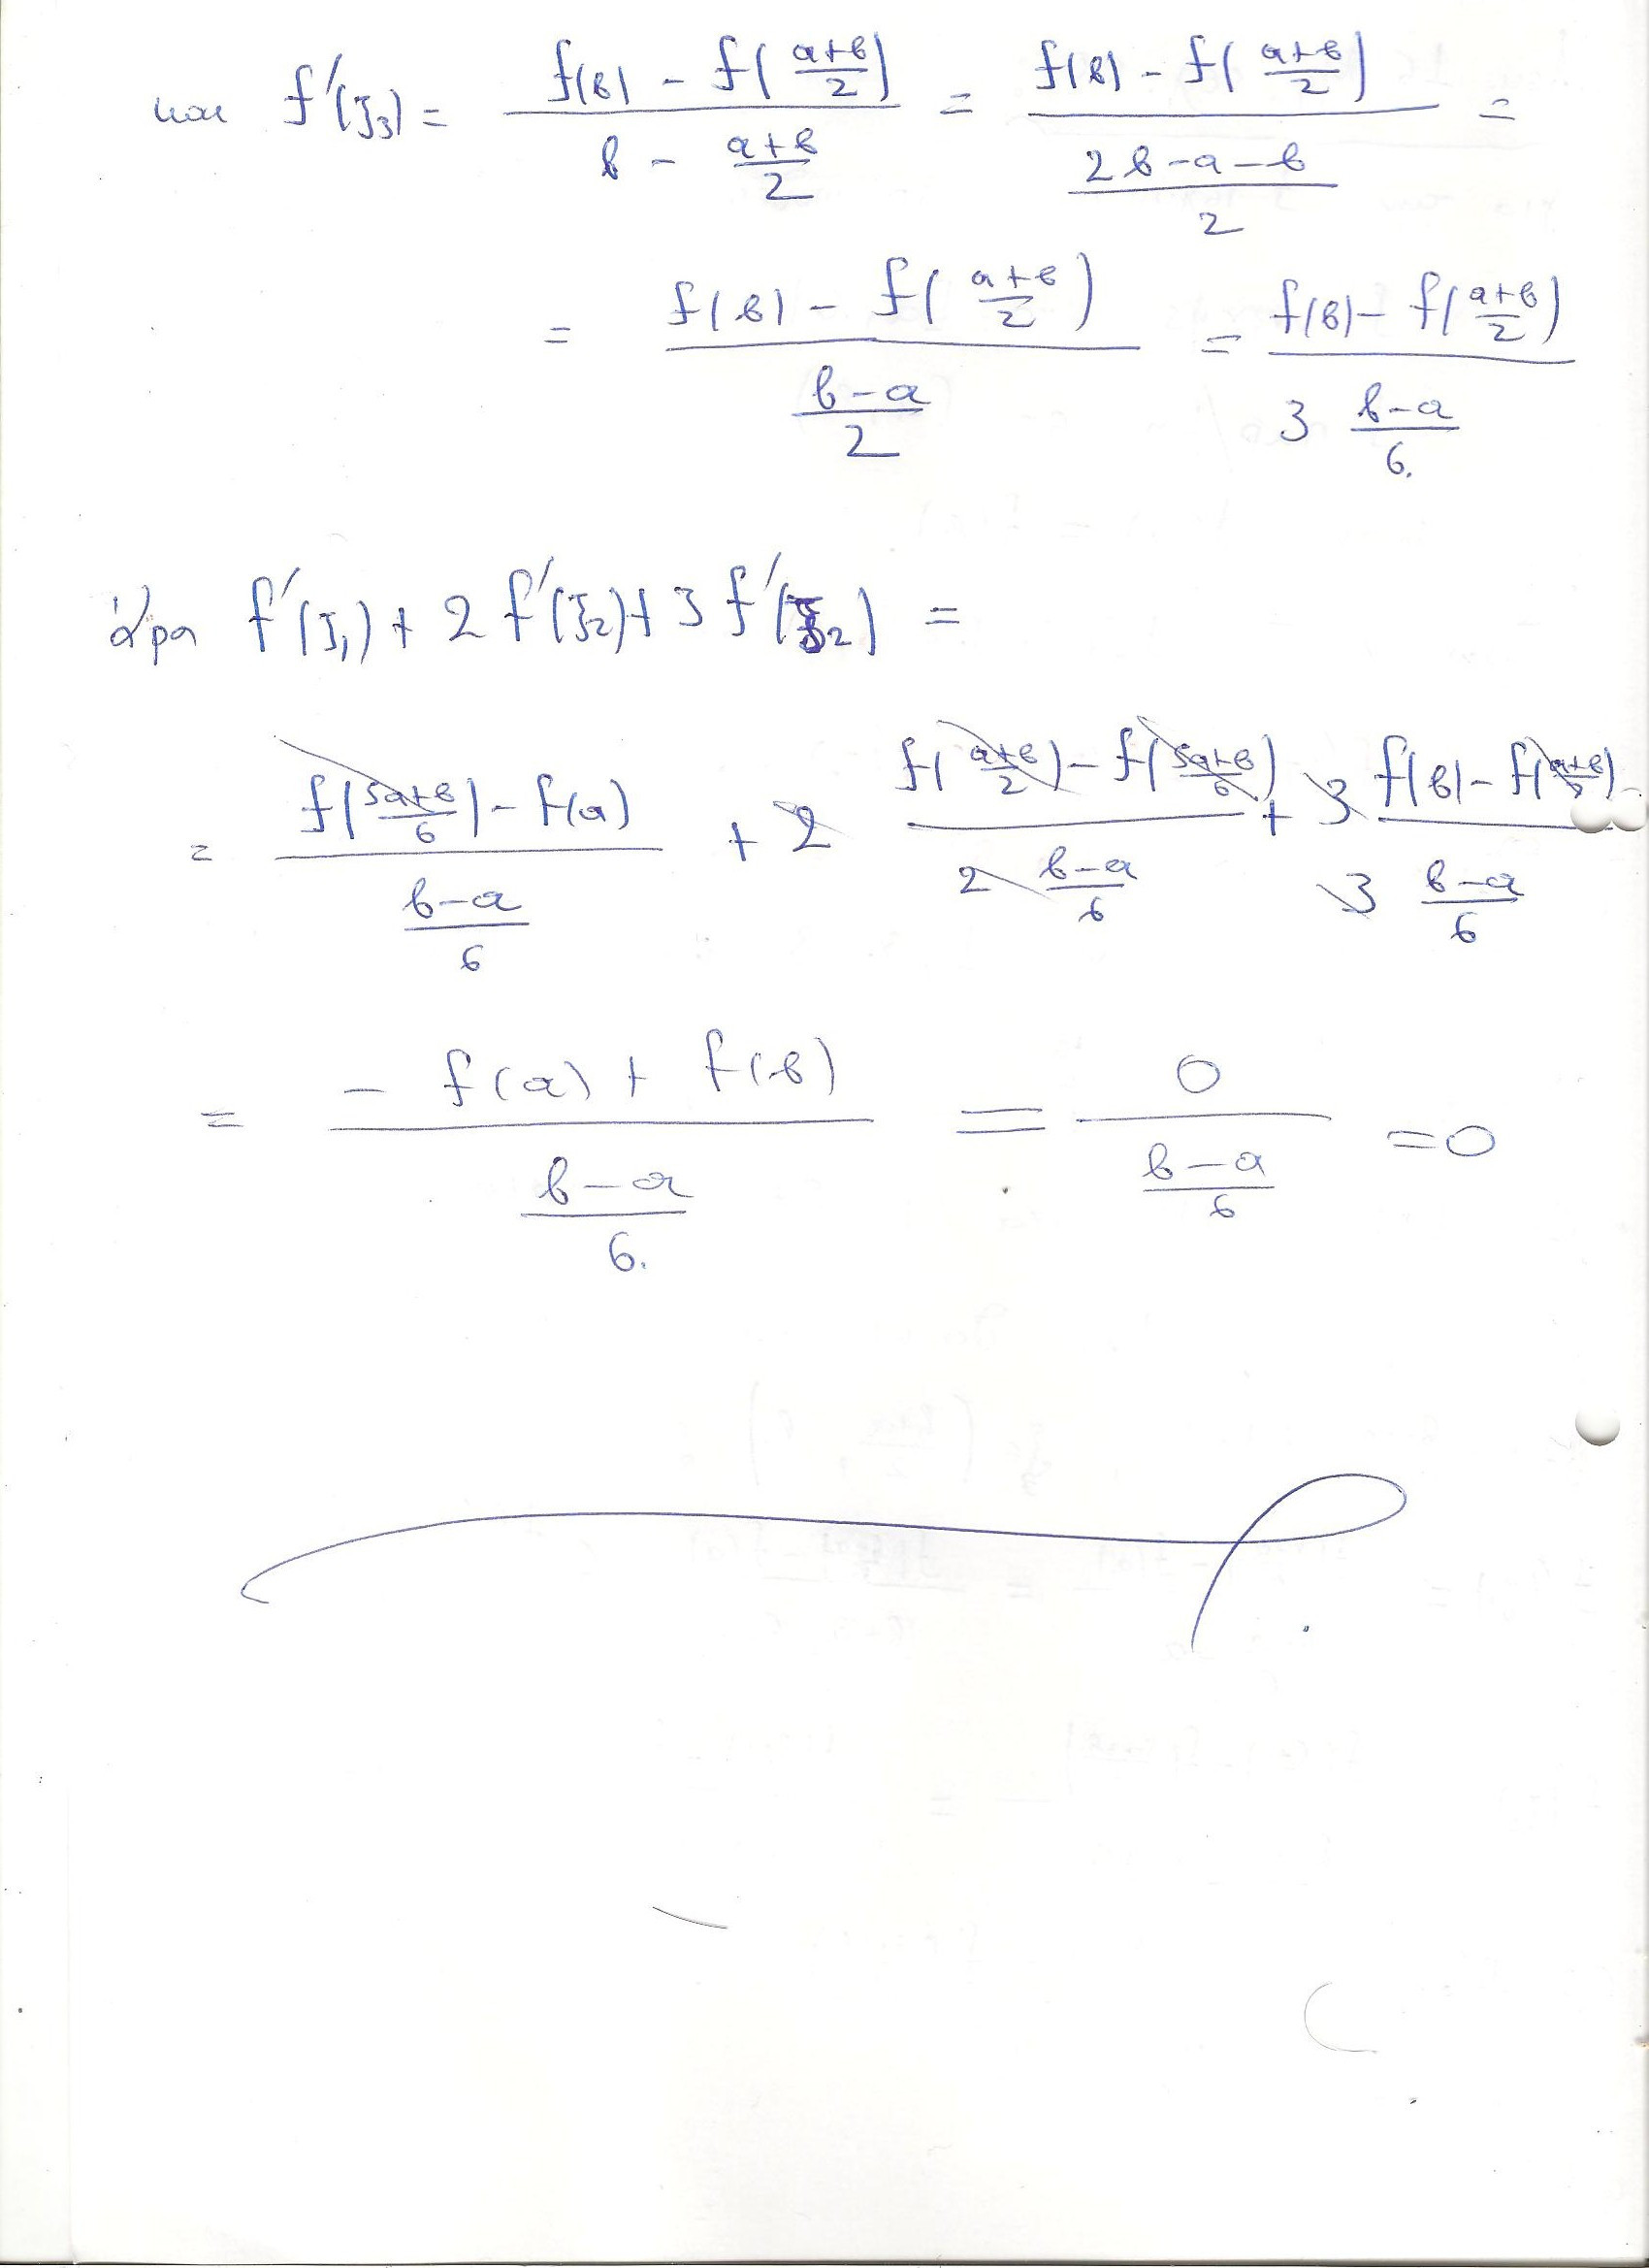 και f'(ξ₃) = (f(β) - f((α+β)/2)) / (β - (α+β)/2) = (f(β) - f((α+β)/2)) / ((2β-α-β)/2) =
= (f(β) - f((α+β)/2)) / ((β-α)/2) = (f(β) - f((α+β)/2)) / (3 (β-α)/6)
άρα f'(ξ₁) + 2 f'(ξ₂) + 3 f'(ξ₂) =
= (f((5α+β)/6) - f(α)) / ((β-α)/6) + 2 (f((α+β)/2) - f((5α+β)/6)) / (2 (β-α)/6) + 3 (f(β) - f((α+β)/2)) / (3 (β-α)/6)
= (- f(α) + f(β)) / ((β-α)/6) = 0 / ((β-α)/6) = 0